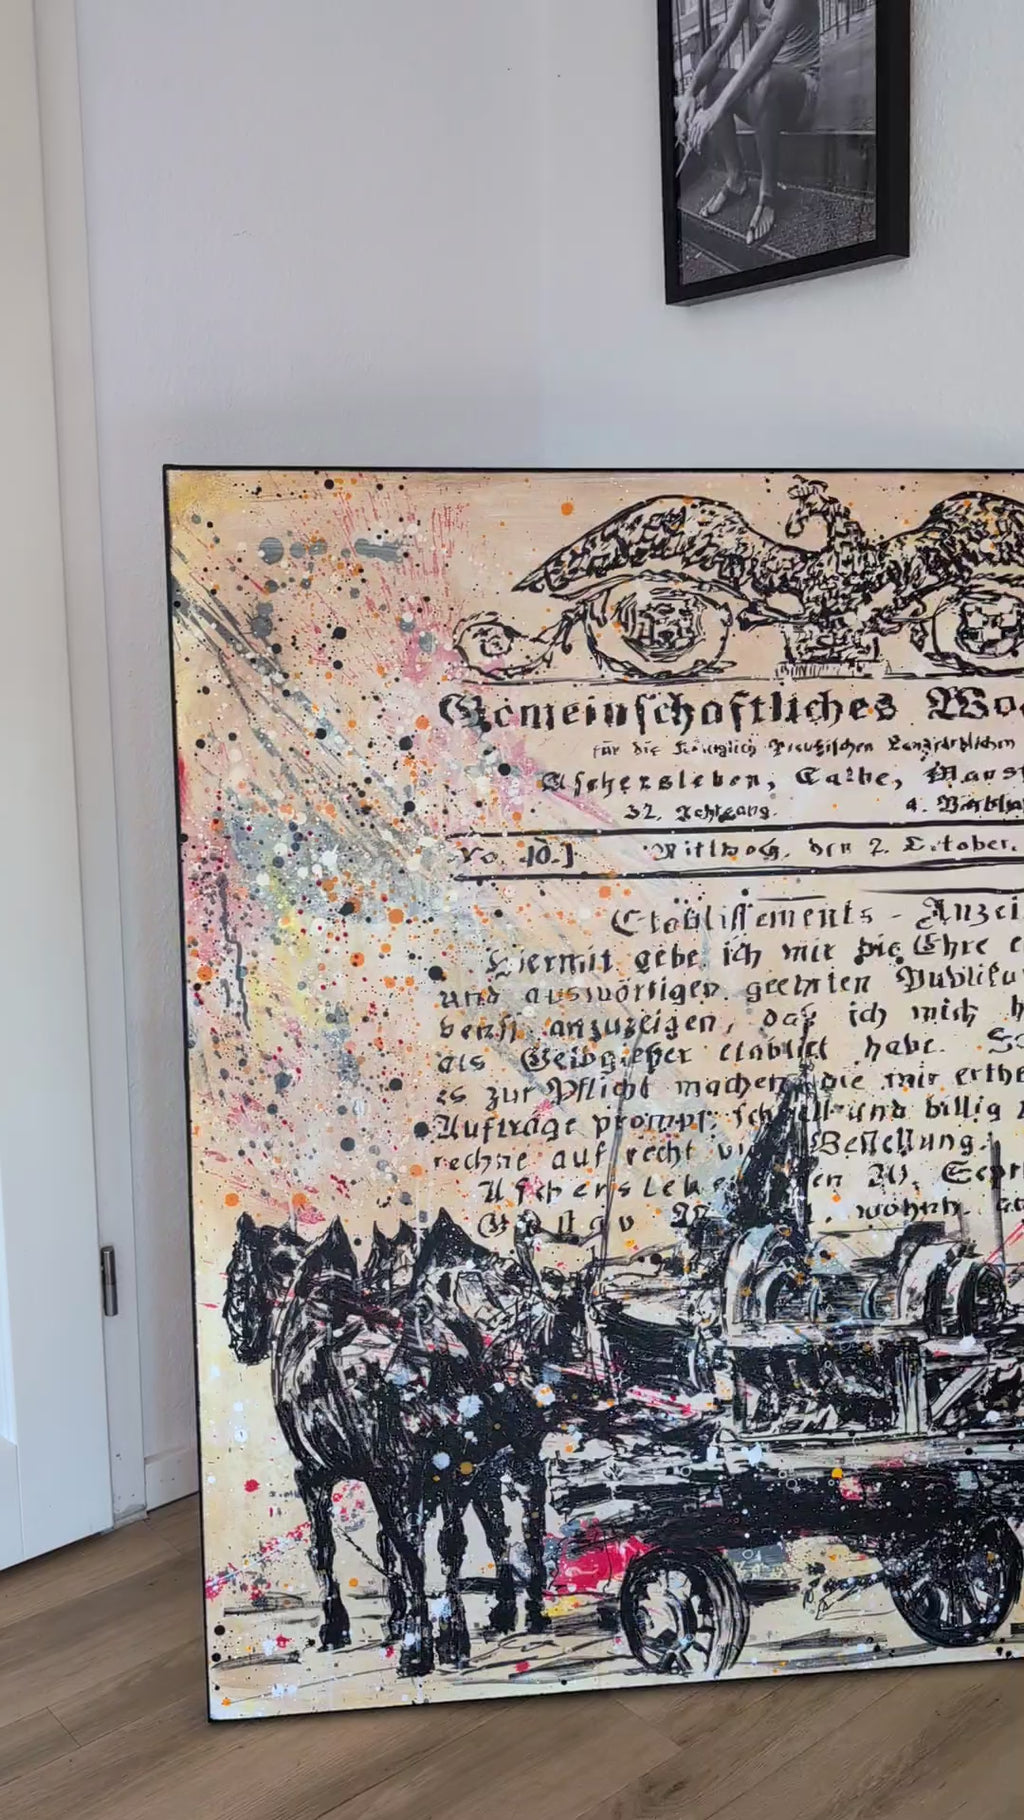 Gemeinschaftliches Wo
für die Königlich Preußischen Landräthlichen
Aschersleben, Calbe, Mans
32. Jahrgang. 4.
No. 40.] Mittwoch, den 2. October.
Etablissements - Anzei
Hiermit gebe ich mir die Ehre e
und auswärtigen geehrten Publiku
benst anzuzeigen, daß ich mich h
als Gelbgießer etablirt habe. So
es zur Pflicht machen, die mir erthe
Aufträge prompt, schnell und billig
rechne auf recht vi Bestellung.
Aschersleb en 20. Sept
Gustav wohnh.